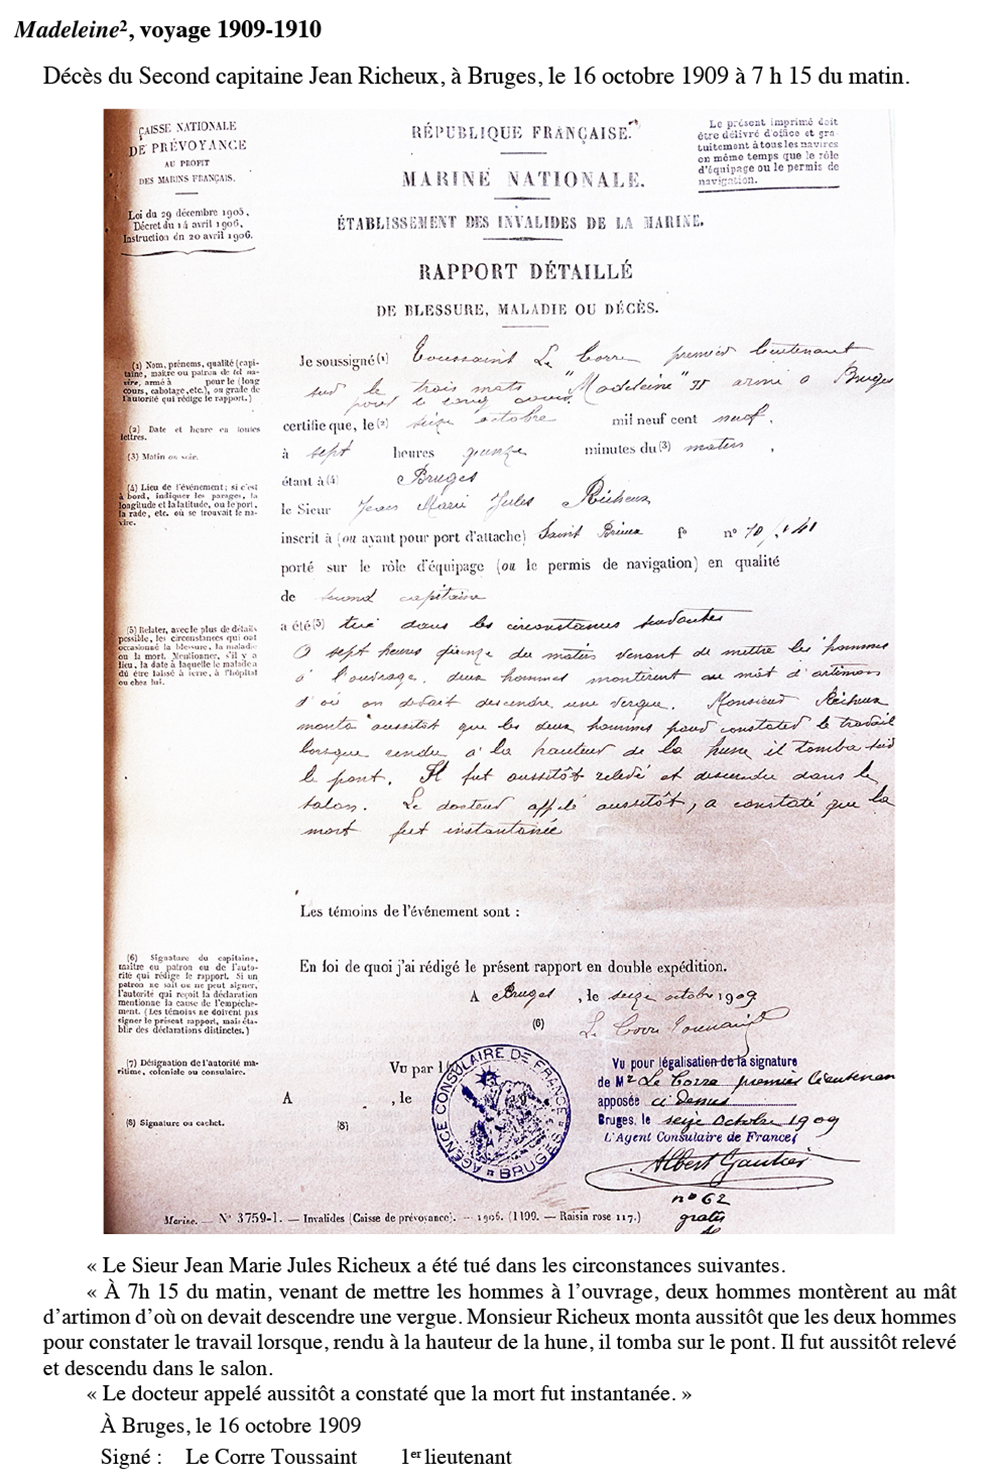 Madeleine², voyage 1909-1910
Décès du Second capitaine Jean Richeux, à Bruges, le 16 octobre 1909 à 7 h 15 du matin.
CAISSE NATIONALE
DE PRÉVOYANCE
AU PROFIT
DES MARINS FRANÇAIS.
Loi du 29 décembre 1905,
Décret du 14 avril 1906,
Instruction du 20 avril 1906.
RÉPUBLIQUE FRANÇAISE.
MARINE NATIONALE.
ÉTABLISSEMENT DES INVALIDES DE LA MARINE.
Le présent imprimé doit
être délivré d'office et gra-
tuitement à tous les navires
en même temps que le rôle
d'équipage ou le permis de
navigation.
RAPPORT DÉTAILLÉ
DE BLESSURE, MALADIE OU DÉCÈS.
(1) Nom, prénoms, qualité (capi-
taine, maître ou patron de tel na-
vire, armé à pour le (long
cours, cabotage, etc.), ou grade de
l'autorité qui rédige le rapport.)
(2) Date et heure en toutes
lettres.
(3) Matin ou soir.
(4) Lieu de l'événement; si c'est
à bord, indiquer les parages, la
longitude et la latitude, ou le port,
la rade, etc. où se trouvait le na-
vire.
(5) Relater, avec le plus de détails
possible, les circonstances qui ont
occasionné la blessure, la maladie
ou la mort. Mentionner, s'il y a
lieu, la date à laquelle le malade a
dû être laissé à terre, à l'hôpital
ou chez lui.
(6) Signature du capitaine,
maître ou patron ou de l'auto-
rité qui rédige le rapport. Si un
patron ne sait ou ne peut signer,
l'autorité qui reçoit la déclaration
mentionne la cause de l'empêche-
ment. (Les témoins ne doivent pas
signer le présent rapport, mais éta-
blir des déclarations distinctes.)
(7) Désignation de l'autorité ma-
ritime, coloniale ou consulaire.
(8) Signature ou cachet.
Je soussigné (1) Toussaint Le Corre premier lieutenant
sur le trois mats "Madeleine" armé a Bruges
pour le long cours
certifie que, le (2) seize octobre mil neuf cent neuf,
à sept heures quinze minutes du (3) matin,
étant à (4) Bruges
le Sieur Jean Marie Jules Richeux
inscrit à (ou ayant pour port d'attache) Saint Brieuc f° n°
porté sur le rôle d'équipage (ou le permis de navigation) en qualité
de second capitaine
a été (5) tué dans les circonstances suivantes
A sept heures quinze du matin venant de mettre les hommes
à l'ouvrage, deux hommes montèrent au mât d'artimon
d'où on devait descendre une vergue. Monsieur Richeux
monta aussitôt que les deux hommes pour constater le travail
lorsque rendu à la hauteur de la hune il tomba sur
le pont. Il fut aussitôt relevé et descendu dans le
salon. Le docteur appelé aussitôt, a constaté que la
mort fut instantanée
Les témoins de l'événement sont :
En foi de quoi j'ai rédigé le présent rapport en double expédition.
A Bruges, le seize octobre 1909
(6) Le Corre Toussaint
Vu par l
A , le
(8)
AGENCE CONSULAIRE DE FRANCE
BRUGES
Vu pour légalisation de la signature
de Mr Le Corre premier lieutenan
apposée ci dessus
Bruges, le seize Octobre 1909
L'Agent Consulaire de France,
Albert Gautier
n° 62
gratis
Marine. — N° 3759-1. — Invalides (Caisse de prévoyance). — 1906. (1199. — Raisin rose 117.)
« Le Sieur Jean Marie Jules Richeux a été tué dans les circonstances suivantes.
« À 7h 15 du matin, venant de mettre les hommes à l'ouvrage, deux hommes montèrent au mât
d'artimon d'où on devait descendre une vergue. Monsieur Richeux monta aussitôt que les deux hommes
pour constater le travail lorsque, rendu à la hauteur de la hune, il tomba sur le pont. Il fut aussitôt relevé
et descendu dans le salon.
« Le docteur appelé aussitôt a constaté que la mort fut instantanée. »
À Bruges, le 16 octobre 1909
Signé : Le Corre Toussaint 1er lieutenant